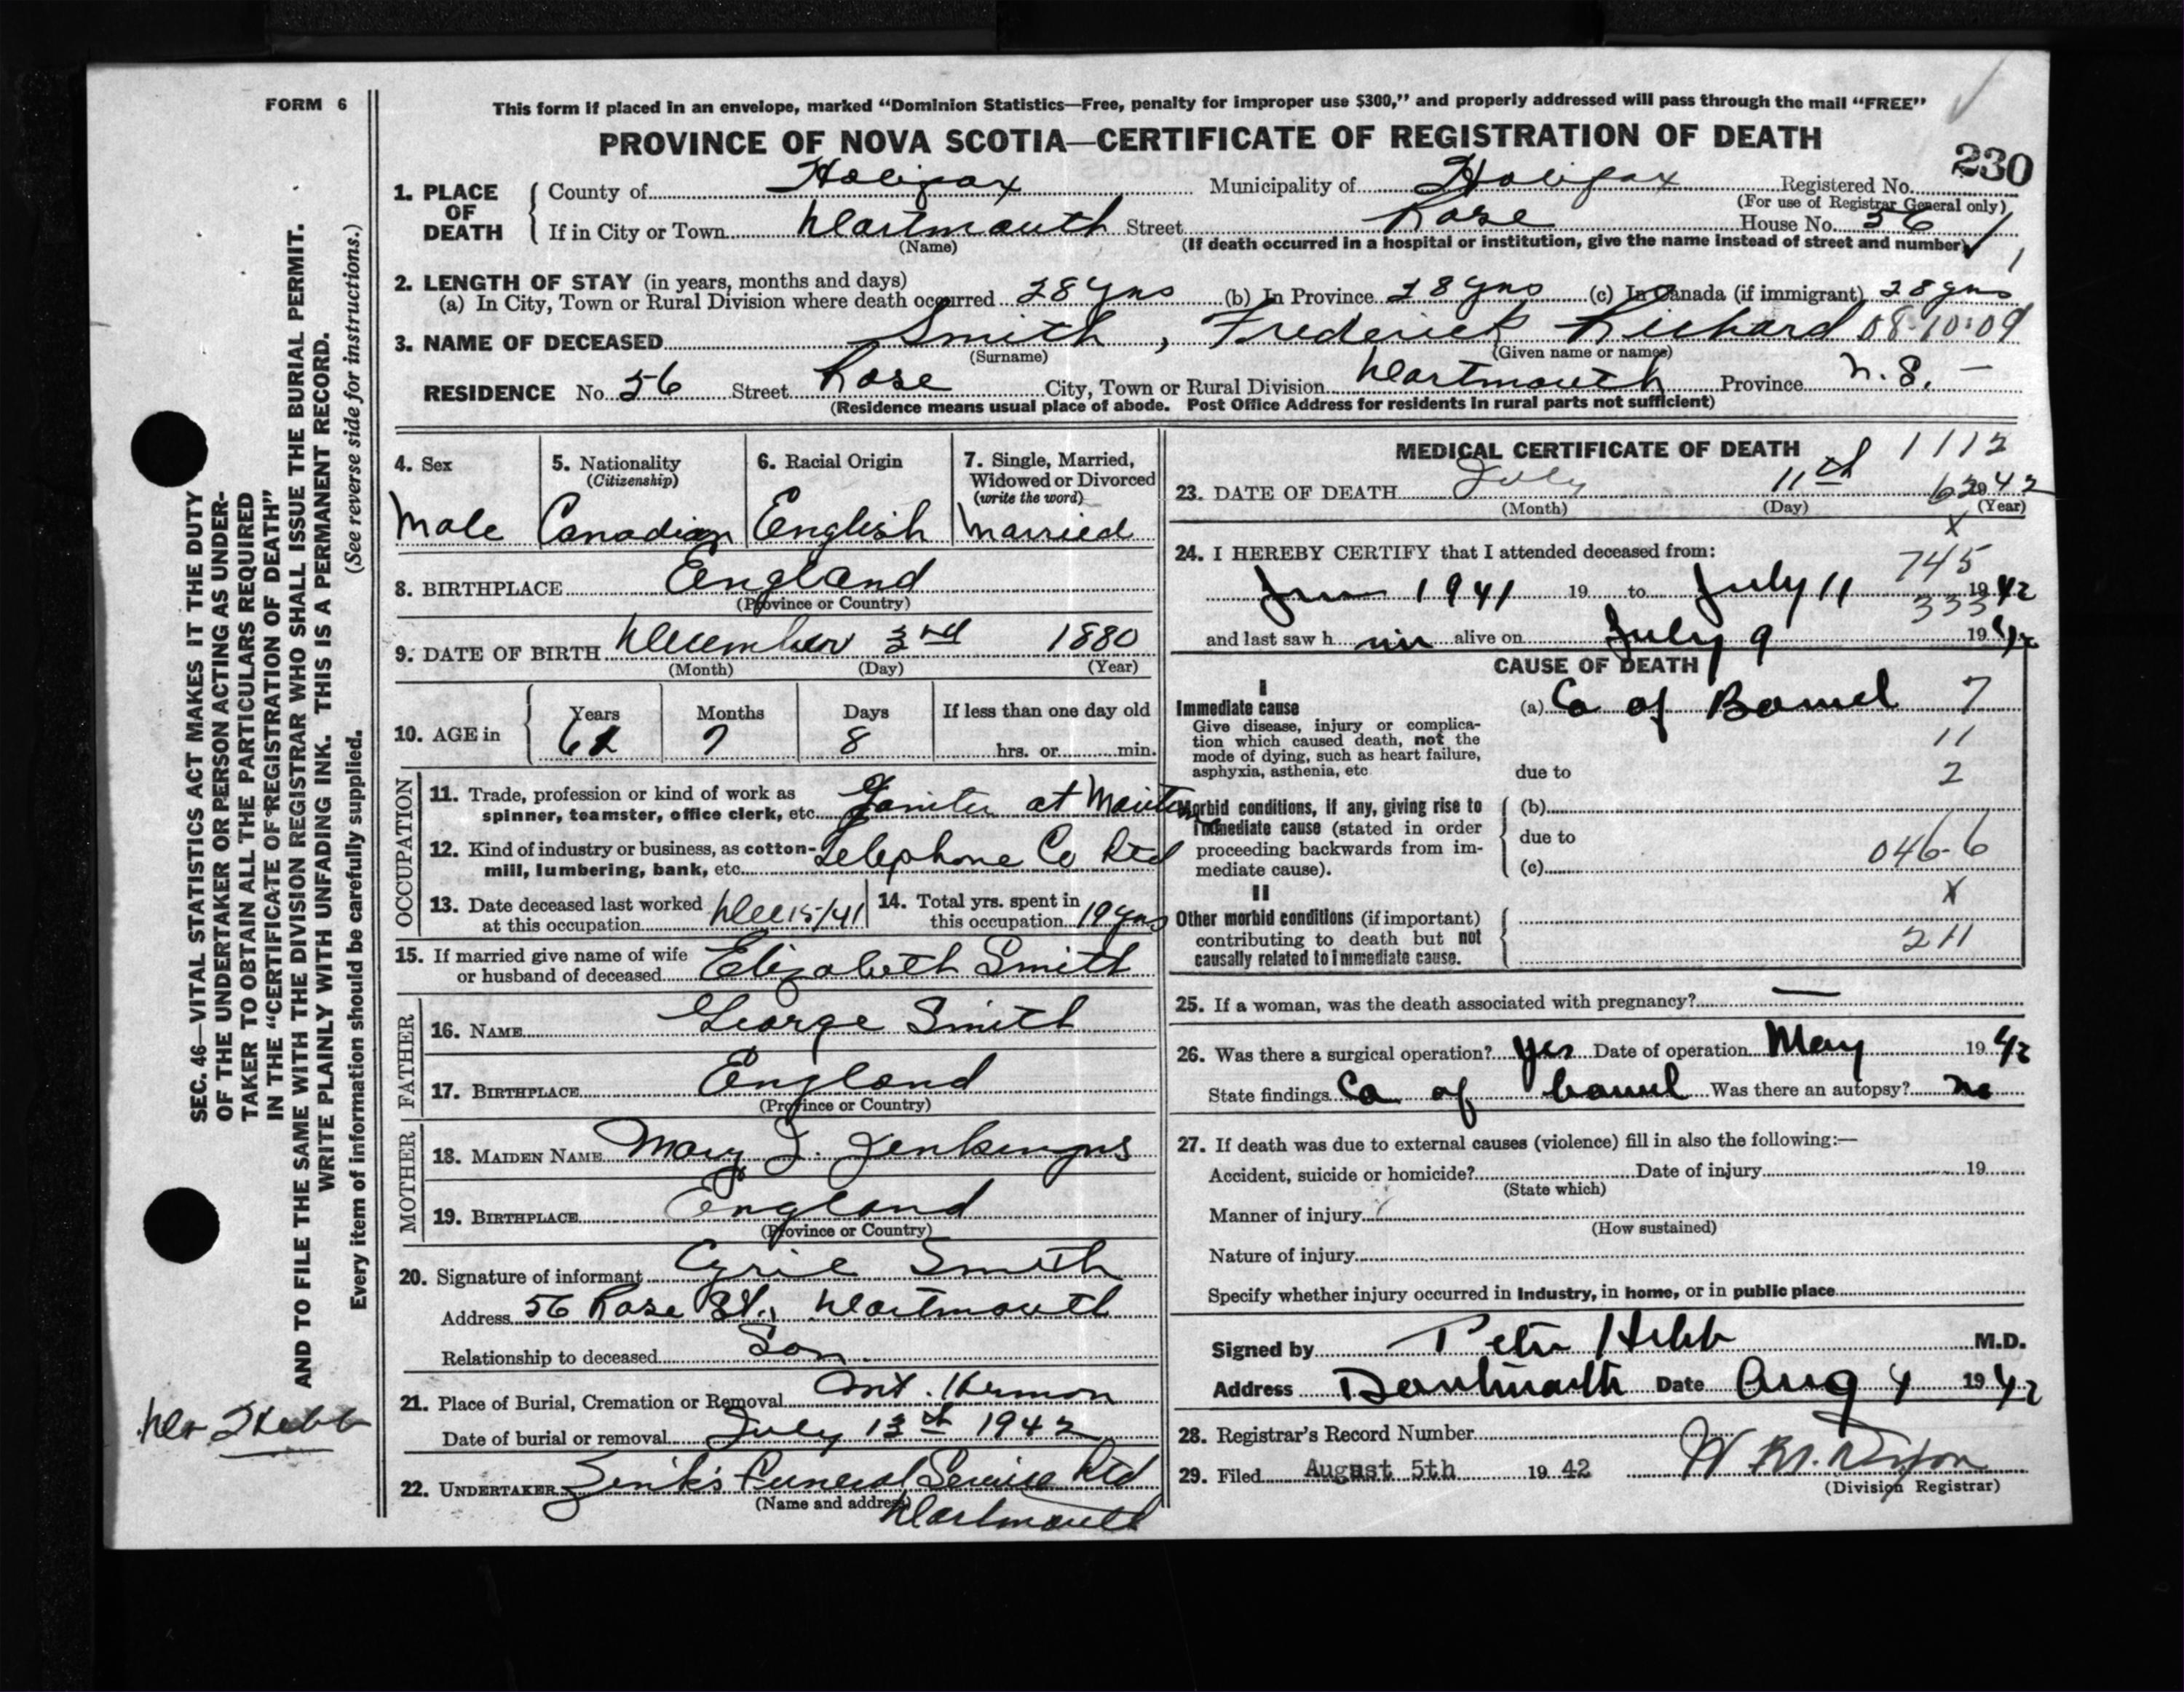 FORM 6
This form if placed in an envelope, marked “Dominion Statistics—Free, penalty for improper use $300,” and properly addressed will pass through the mail “FREE”
PROVINCE OF NOVA SCOTIA—CERTIFICATE OF REGISTRATION OF DEATH
230
1. PLACE OF DEATH County of Halifax Municipality of Halifax Registered No.
(For use of Registrar General only)
If in City or Town Dartmouth Street Rose House No. 56
(Name) (If death occurred in a hospital or institution, give the name instead of street and number)
2. LENGTH OF STAY (in years, months and days)
(a) In City, Town or Rural Division where death occurred 28 yrs (b) In Province 28 yrs (c) In Canada (if immigrant) 28 yrs
3. NAME OF DECEASED Smith, Frederick Richard 08-10-09
(Surname) (Given name or names)
RESIDENCE No. 56 Street Rose City, Town or Rural Division Dartmouth Province N.S. —
(Residence means usual place of abode. Post Office Address for residents in rural parts not sufficient)
4. Sex
Male
5. Nationality
(Citizenship)
Canadian
6. Racial Origin
English
7. Single, Married,
Widowed or Divorced
(write the word)
Married
8. BIRTHPLACE England
(Province or Country)
9. DATE OF BIRTH December 3rd 1880
(Month) (Day) (Year)
10. AGE in Years Months Days If less than one day old
7 8 hrs. or min.
OCCUPATION
11. Trade, profession or kind of work as
spinner, teamster, office clerk, etc. Janitor at
12. Kind of industry or business, as cotton-
mill, lumbering, bank, etc. Telephone Co Ltd
13. Date deceased last worked
at this occupation Dec 15/41
14. Total yrs. spent in
this occupation 19 yrs
15. If married give name of wife
or husband of deceased Elizabeth Smith
FATHER
16. NAME George Smith
17. BIRTHPLACE England
(Province or Country)
MOTHER
18. MAIDEN NAME Mary J. Jenkings
19. BIRTHPLACE England
(Province or Country)
20. Signature of informant Cyril Smith
Address 56 Rose St., Dartmouth
Relationship to deceased Son.
21. Place of Burial, Cremation or Removal Mt. Hermon
Date of burial or removal July 13th 1942
22. UNDERTAKER Zink's Funeral Service Ltd
(Name and address)
Dartmouth
MEDICAL CERTIFICATE OF DEATH
1112
23. DATE OF DEATH July 11th 1942
(Month) (Day) (Year)
x
24. I HEREBY CERTIFY that I attended deceased from:
745
June 1941 19 to July 11 1942
333
and last saw h im alive on July 9 1942
CAUSE OF DEATH
I
Immediate cause
Give disease, injury or complica-
tion which caused death, not the
mode of dying, such as heart failure,
asphyxia, asthenia, etc
(a) Ca of Bowel 7
11
due to 2
Morbid conditions, if any, giving rise to
immediate cause (stated in order
proceeding backwards from im-
mediate cause).
(b)
due to
(c) 046-6
x
II
Other morbid conditions (if important)
contributing to death but not
causally related to immediate cause.
211
25. If a woman, was the death associated with pregnancy? —
26. Was there a surgical operation? yes Date of operation May 1942
State findings Ca of bowel Was there an autopsy? no
27. If death was due to external causes (violence) fill in also the following:—
Accident, suicide or homicide? Date of injury 19
(State which)
Manner of injury
(How sustained)
Nature of injury
Specify whether injury occurred in Industry, in home, or in public place
Signed by Peter Hebb M.D.
Address Dartmouth Date Aug 4 1942
28. Registrar's Record Number
29. Filed August 5th 1942
(Division Registrar)
SEC. 46—VITAL STATISTICS ACT MAKES IT THE DUTY
OF THE UNDERTAKER OR PERSON ACTING AS UNDER-
TAKER TO OBTAIN ALL THE PARTICULARS REQUIRED
IN THE “CERTIFICATE OF REGISTRATION OF DEATH”
AND TO FILE THE SAME WITH THE DIVISION REGISTRAR WHO SHALL ISSUE THE BURIAL PERMIT.
WRITE PLAINLY WITH UNFADING INK. THIS IS A PERMANENT RECORD.
(See reverse side for instructions.)
Every item of information should be carefully supplied.
Dr Hebb